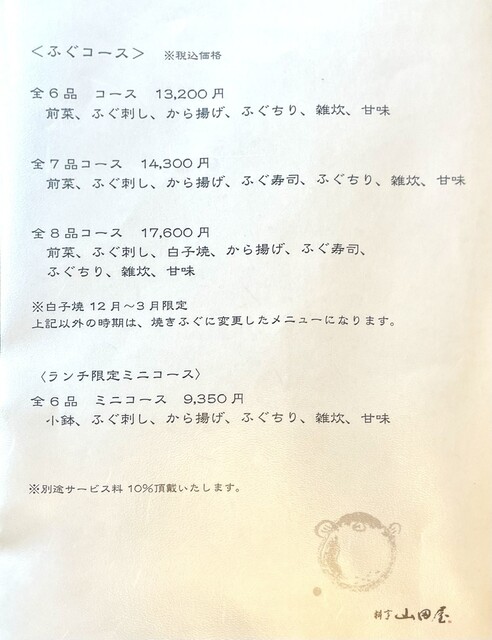 ＜ふぐコース＞　※税込価格
全6品　コース　13,200円
前菜、ふぐ刺し、から揚げ、ふぐちり、雑炊、甘味
全7品コース　14,300円
前菜、ふぐ刺し、から揚げ、ふぐ寿司、ふぐちり、雑炊、甘味
全8品コース　17,600円
前菜、ふぐ刺し、白子焼、から揚げ、ふぐ寿司、
ふぐちり、雑炊、甘味
※白子焼 12月～3月限定
上記以外の時期は、焼きふぐに変更したメニューになります。
〈ランチ限定ミニコース〉
全6品　ミニコース　9,350円
小鉢、ふぐ刺し、から揚げ、ふぐちり、雑炊、甘味
※別途サービス料10%頂戴いたします。
料亭 山田屋